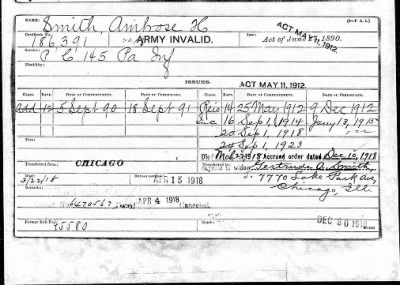 NAME: Smith, Ambrose H (3-F A.I.)
Certificate No. ACT MAY 11, 1912.
186391 ARMY INVALID. Law: Act of June 27, 1890.
P C 145 Pa Inf
Disability:
ISSUES. ACT MAY 11, 1912.
CLASS. RATE. DATE OF COMMENCEMENT. DATE OF CERTIFICATE. CLASS. RATE. DATE OF COMMENCEMENT. DATE OF CERTIFICATE.
Add 12 5 Sept 90 18 Sept 91 Reis 14 25 May 1912 9 Dec 1912
Inc 16 Sep 1, 1914 Jany 13, 1915
20 Sep 1, 1918
24 Sep 1, 1923
Accrued order dated Dec 10, 1918
Transferred from CHICAGO Payable to widow Gertrude A. Smith
Died notice APR 15 1918 7770 Lake Park Ave,
3/22/18 Chicago, Ill.
No. 6470567 Issued APR 4 1918 Canceled
Former Roll No. DEC 30 1918
45580